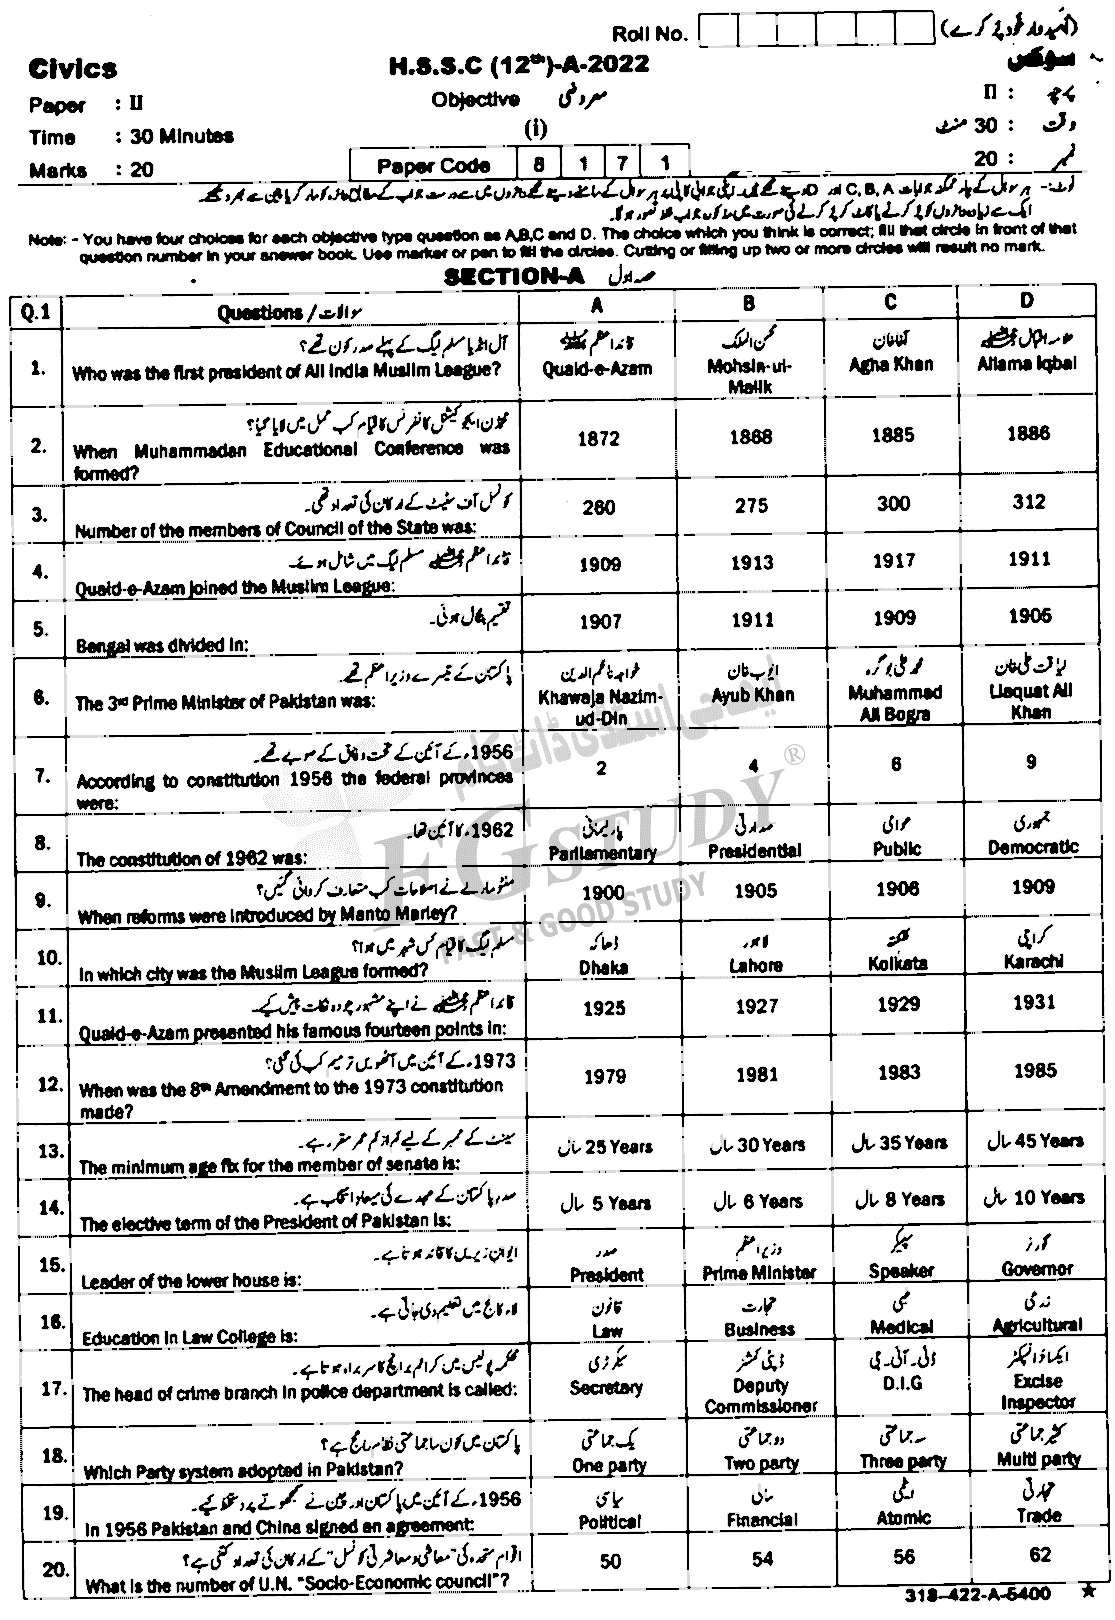 Roll No. (امیدوار خود پُر کرے)
Civics H.S.S.C (12th)-A-2022 سوکس
Paper : II Objective معروضی پرچہ : II
Time : 30 Minutes (i) وقت : 30 منٹ
Marks : 20 Paper Code 8 1 7 1 نمبر : 20
Note: - You have four choices for each objective type question as A,B,C and D. The choice which you think is correct; fill that circle in front of that
question number in your answer book. Use marker or pen to fill the circles. Cutting or filling up two or more circles will result no mark.
SECTION-A حصہ اول
Q.1 Questions / سوالات A B C D
آل انڈیا مسلم لیگ کے پہلے صدر کون تھے؟
1. Who was the first president of All India Muslim League?
قائداعظم محسن الملک آغا خان علامہ اقبال
Quaid-e-Azam Mohsin-ul-Malik Agha Khan Allama Iqbal
محمڈن ایجوکیشنل کانفرنس کا قیام کب عمل میں لایا گیا؟
2. When Muhammadan Educational Conference was
formed?
1872 1868 1885 1886
کونسل آف سٹیٹ کے ارکان کی تعداد تھی۔
3. Number of the members of Council of the State was:
260 275 300 312
قائداعظم مسلم لیگ میں شامل ہوئے۔
4. Quaid-e-Azam joined the Muslim League:
1909 1913 1917 1911
تقسیم بنگال ہوئی۔
5. Bengal was divided in:
1907 1911 1909 1906
پاکستان کے تیسرے وزیراعظم تھے۔
6. The 3rd Prime Minister of Pakistan was:
خواجہ ناظم الدین ایوب خان محمد علی بوگرہ لیاقت علی خان
Khawaja Nazim-ud-Din Ayub Khan Muhammad Ali Bogra Liaquat Ali Khan
1956ء کے آئین کے تحت وفاق کے صوبے تھے۔
7. According to constitution 1956 the federal provinces
were:
2 4 6 9
1962ء کا آئین تھا۔
8. The constitution of 1962 was:
پارلیمانی صدارتی عوامی جمہوری
Parliamentary Presidential Public Democratic
منٹو مارلے نے اصلاحات کب متعارف کروائی گئیں؟
9. When reforms were introduced by Manto Marley?
1900 1905 1906 1909
مسلم لیگ کا قیام کس شہر میں ہوا؟
10. In which city was the Muslim League formed?
ڈھاکہ لاہور کلکتہ کراچی
Dhaka Lahore Kolkata Karachi
قائداعظم نے اپنے مشہور چودہ نکات پیش کیے۔
11. Quaid-e-Azam presented his famous fourteen points in:
1925 1927 1929 1931
1973ء کے آئین میں آٹھویں ترمیم کب کی گئی؟
12. When was the 8th Amendment to the 1973 constitution
made?
1979 1981 1983 1985
سینٹ کے ممبر کے لیے کم از کم عمر مقرر ہے۔
13. The minimum age fix for the member of senate is:
25 Years سال 30 Years سال 35 Years سال 45 Years سال
صدر پاکستان کے عہدے کی میعاد انتخاب ہے۔
14. The elective term of the President of Pakistan is:
5 Years سال 6 Years سال 8 Years سال 10 Years سال
ایوان زیریں کا قائد ہوتا ہے۔
15. Leader of the lower house is:
صدر وزیراعظم سپیکر گورنر
President Prime Minister Speaker Governor
لاء کالج میں تعلیم دی جاتی ہے۔
16. Education in Law College is:
قانون تجارت طبی زرعی
Law Business Medical Agricultural
محکمہ پولیس میں کرائم برانچ کا سربراہ ہوتا ہے۔
17. The head of crime branch in police department is called:
سیکرٹری ڈپٹی کمشنر ڈی۔آئی۔جی ایکسائز انسپکٹر
Secretary Deputy Commissioner D.I.G Excise Inspector
پاکستان میں کون سا جماعتی نظام رائج ہے؟
18. Which Party system adopted in Pakistan?
یک جماعتی دو جماعتی سہ جماعتی کثیر جماعتی
One party Two party Three party Multi party
1956ء کے آئین میں پاکستان اور چین نے سمجھوتے پر دستخط کیے۔
19. In 1956 Pakistan and China signed an agreement:
سیاسی مالی ایٹمی تجارتی
Political Financial Atomic Trade
اقوام متحدہ کی "معاشی و معاشرتی کونسل" کے ارکان کی تعداد کتنی ہے؟
20. What is the number of U.N. "Socio-Economic council"?
50 54 56 62
318-422-A-5400 ★
FG STUDY ®
FAST & GOOD STUDY